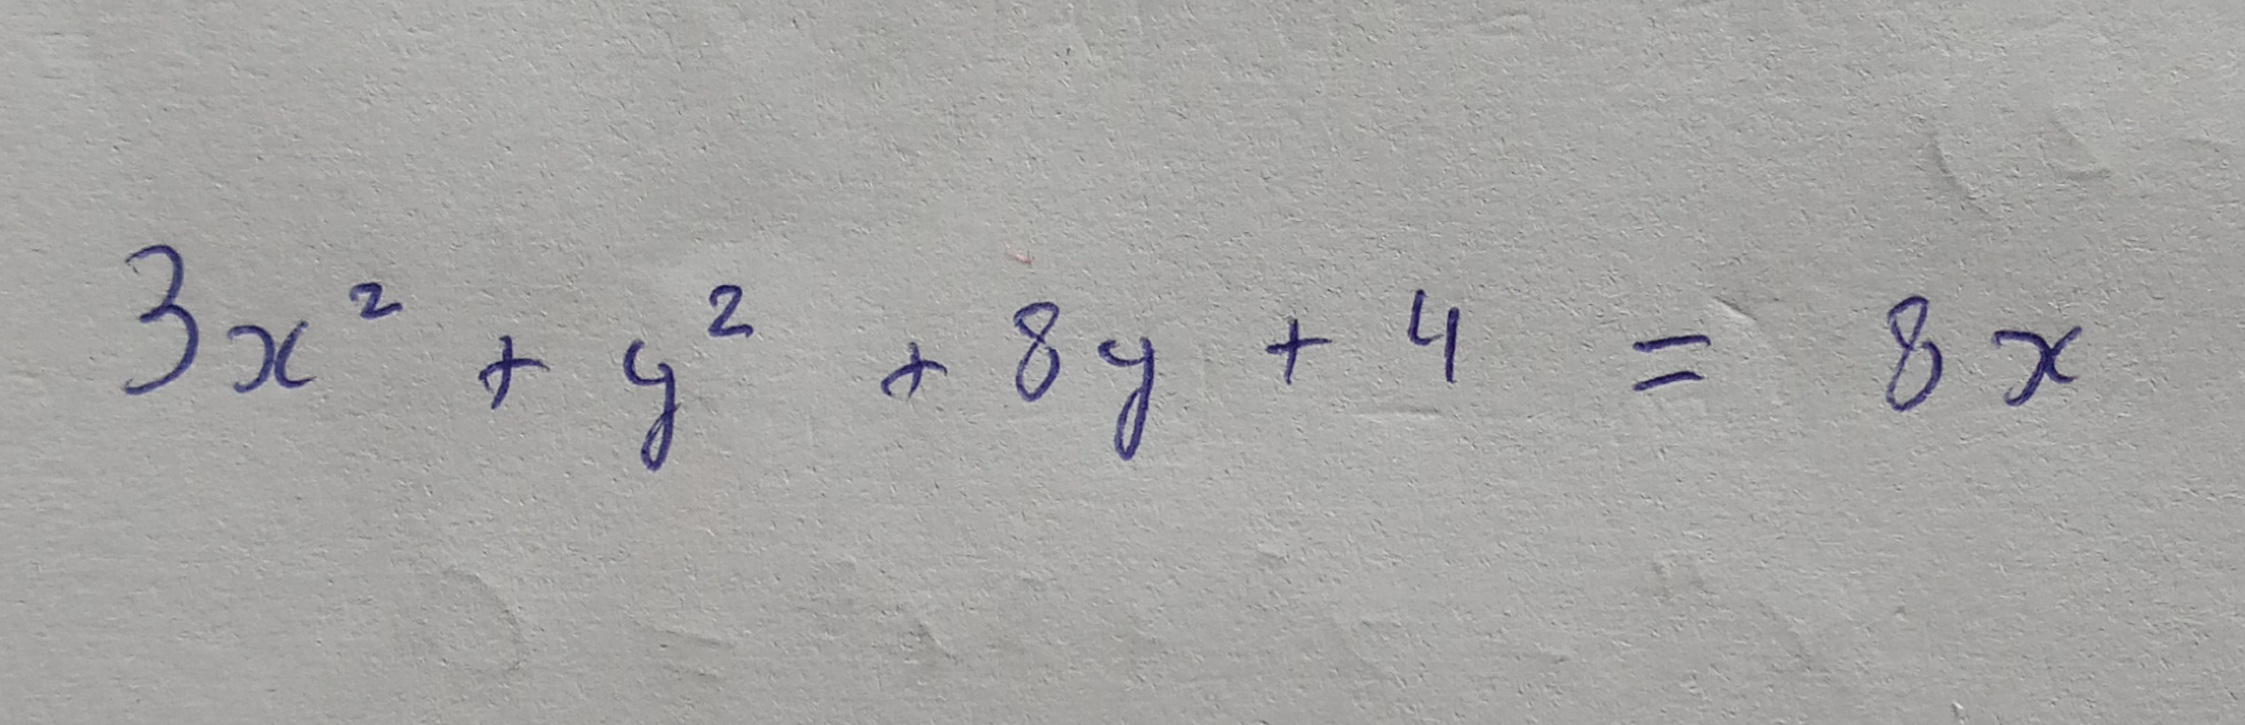 3x² + y² + 8y + 4 = 8x